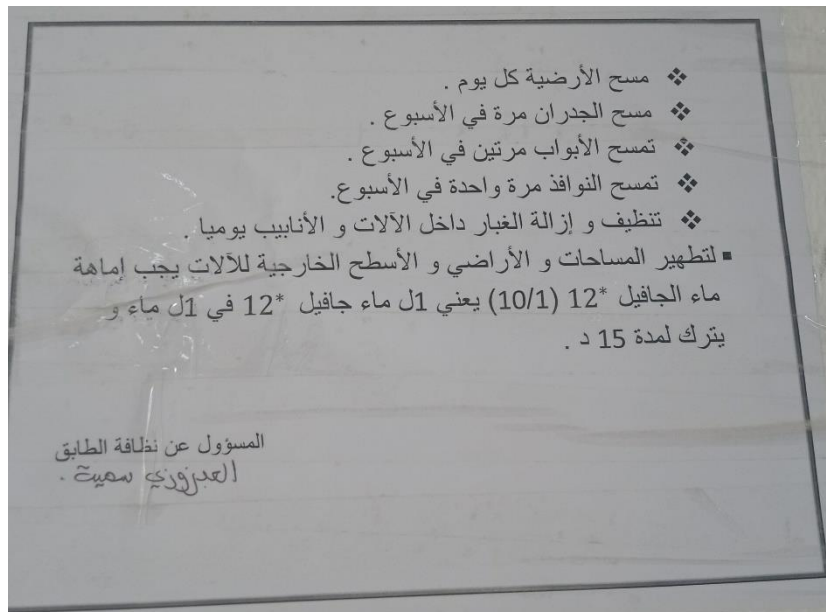 ❖ مسح الأرضية كل يوم .
❖ مسح الجدران مرة في الأسبوع .
❖ تمسح الأبواب مرتين في الأسبوع .
❖ تمسح النوافذ مرة واحدة في الأسبوع.
❖ تنظيف و إزالة الغبار داخل الآلات و الأنابيب يوميا .
▪ لتطهير المساحات و الأراضي و الأسطح الخارجية للآلات يجب إماهة
ماء الجافيل *12 (10/1) يعني 1ل ماء جافيل *12 في 1ل ماء و
يترك لمدة 15 د .
المسؤول عن نظافة الطابق
سمية .